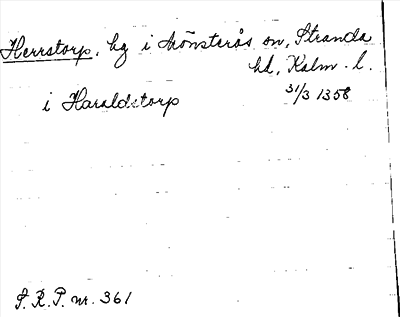 Herrstorp, hg i Mönsterås sn, Stranda
hd, Kalm. l.
i Haraldstorp
31/3 1358
S. R. P. nr. 361